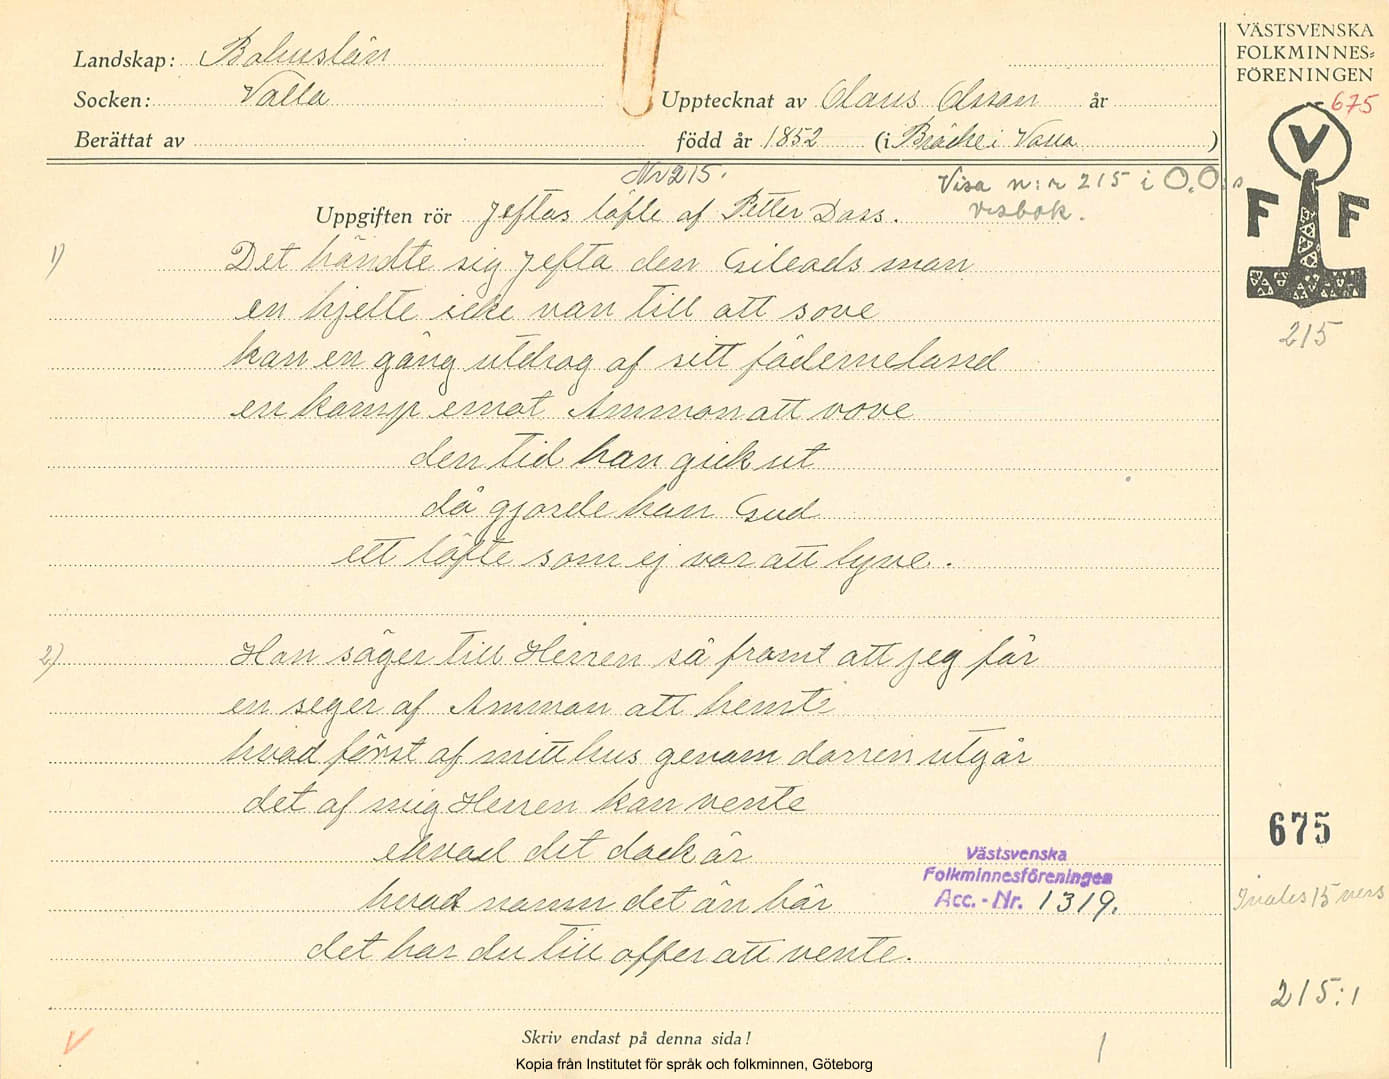 VÄSTSVENSKA
FOLKMINNES-
FÖRENINGEN
675
Landskap: Bohuslän
Socken: Valla
Upptecknat av Olaus Olsson år
Berättat av
född år 1852 (i Bräcke i Valla)
Nr 215.
Visa n:r 215 i O.O:s
visbok.
Uppgiften rör Jeftas löfte af Petter Dass.
V
F F
215
1) Det händte sig Jefta den Gileads man
en hjelte icke van till att sove
han en gång utdrog af sitt fäderneland
en kamp emot Ammon att vove
den tid han gick ut
då gjorde han Gud
ett löfte som ej var att lyve.
2) Han säger till Herren så framt att jeg får
en seger af Ammon att hemte
hvad först af mitt hus genom dörren utgår
det af mig Herren kan vente
ehvad det dock är
hvad namn det än bär
det har du till offer att vente.
Västsvenska
Folkminnesföreningen
Acc.-Nr. 1319.
675
15 vers
215:1
V
1
Skriv endast på denna sida!
Kopia från Institutet för språk och folkminnen, Göteborg